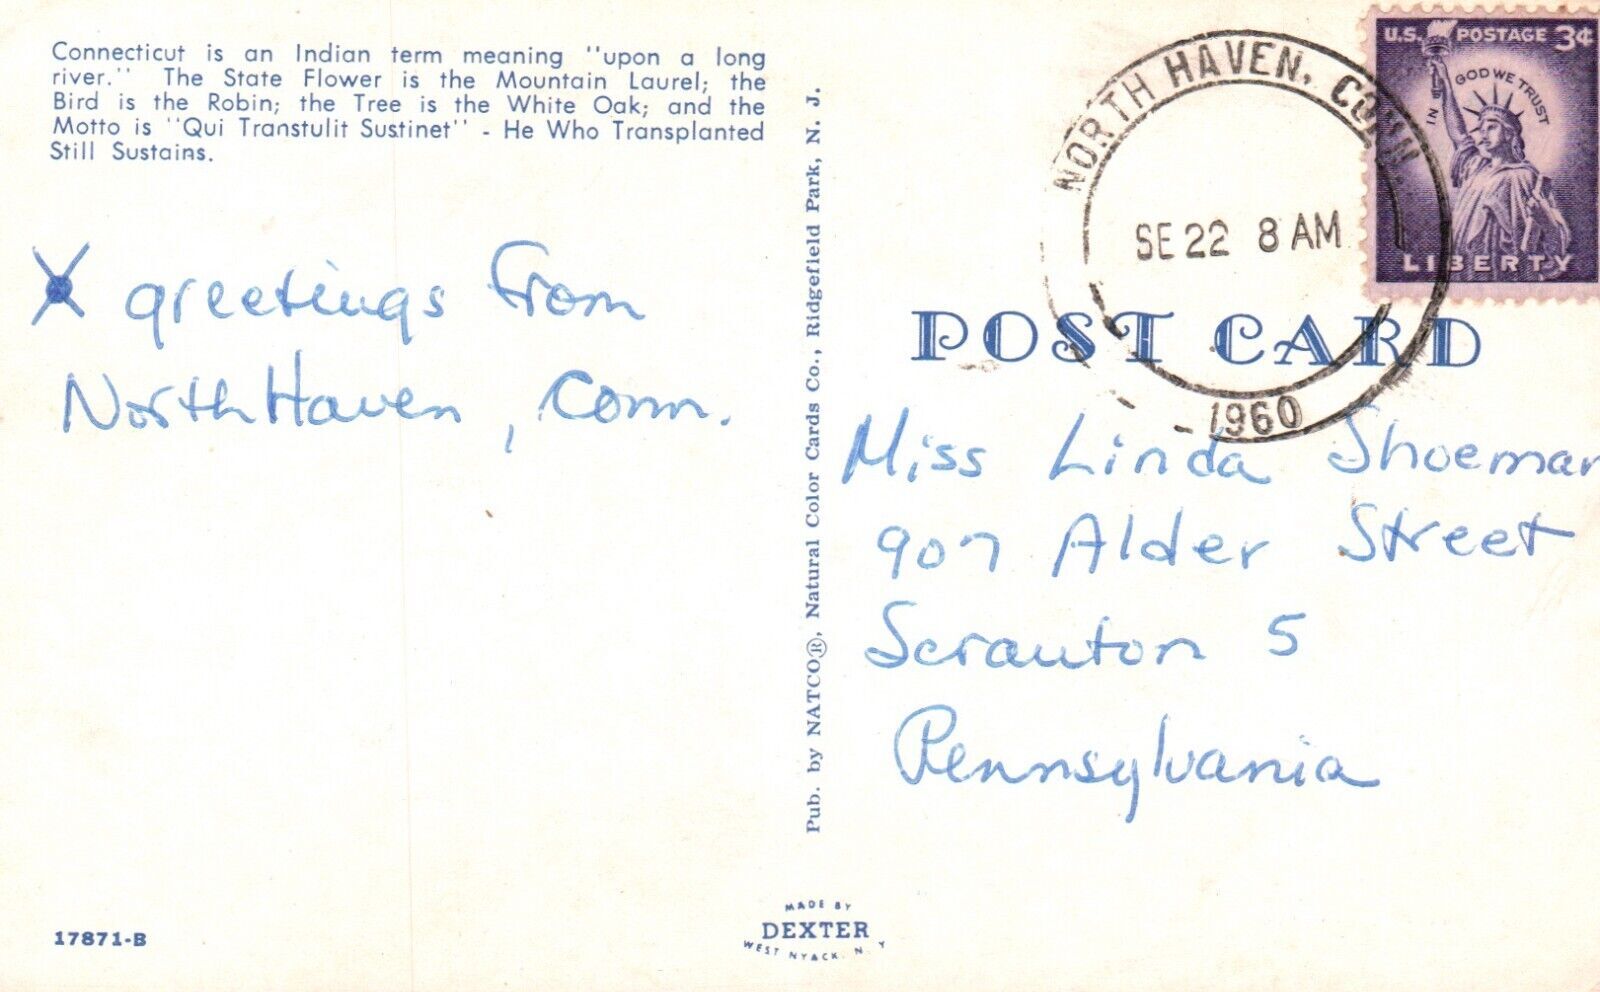 Connecticut is an Indian term meaning "upon a long
river." The State Flower is the Mountain Laurel; the
Bird is the Robin; the Tree is the White Oak; and the
Motto is "Qui Transtulit Sustinet" - He Who Transplanted
Still Sustains.
X greetings from
North Haven, Conn.
17871-B
Pub. by NATCO®, Natural Color Cards Co., Ridgefield Park, N. J.
MADE BY
DEXTER
WEST NYACK, N. Y
NORTH HAVEN, CONN.
SE 22 8 AM
1960
U.S. POSTAGE 3¢
IN GOD WE TRUST
LIBERTY
POST CARD
Miss Linda Shoeman
907 Alder Street
Scranton 5
Pennsylvania